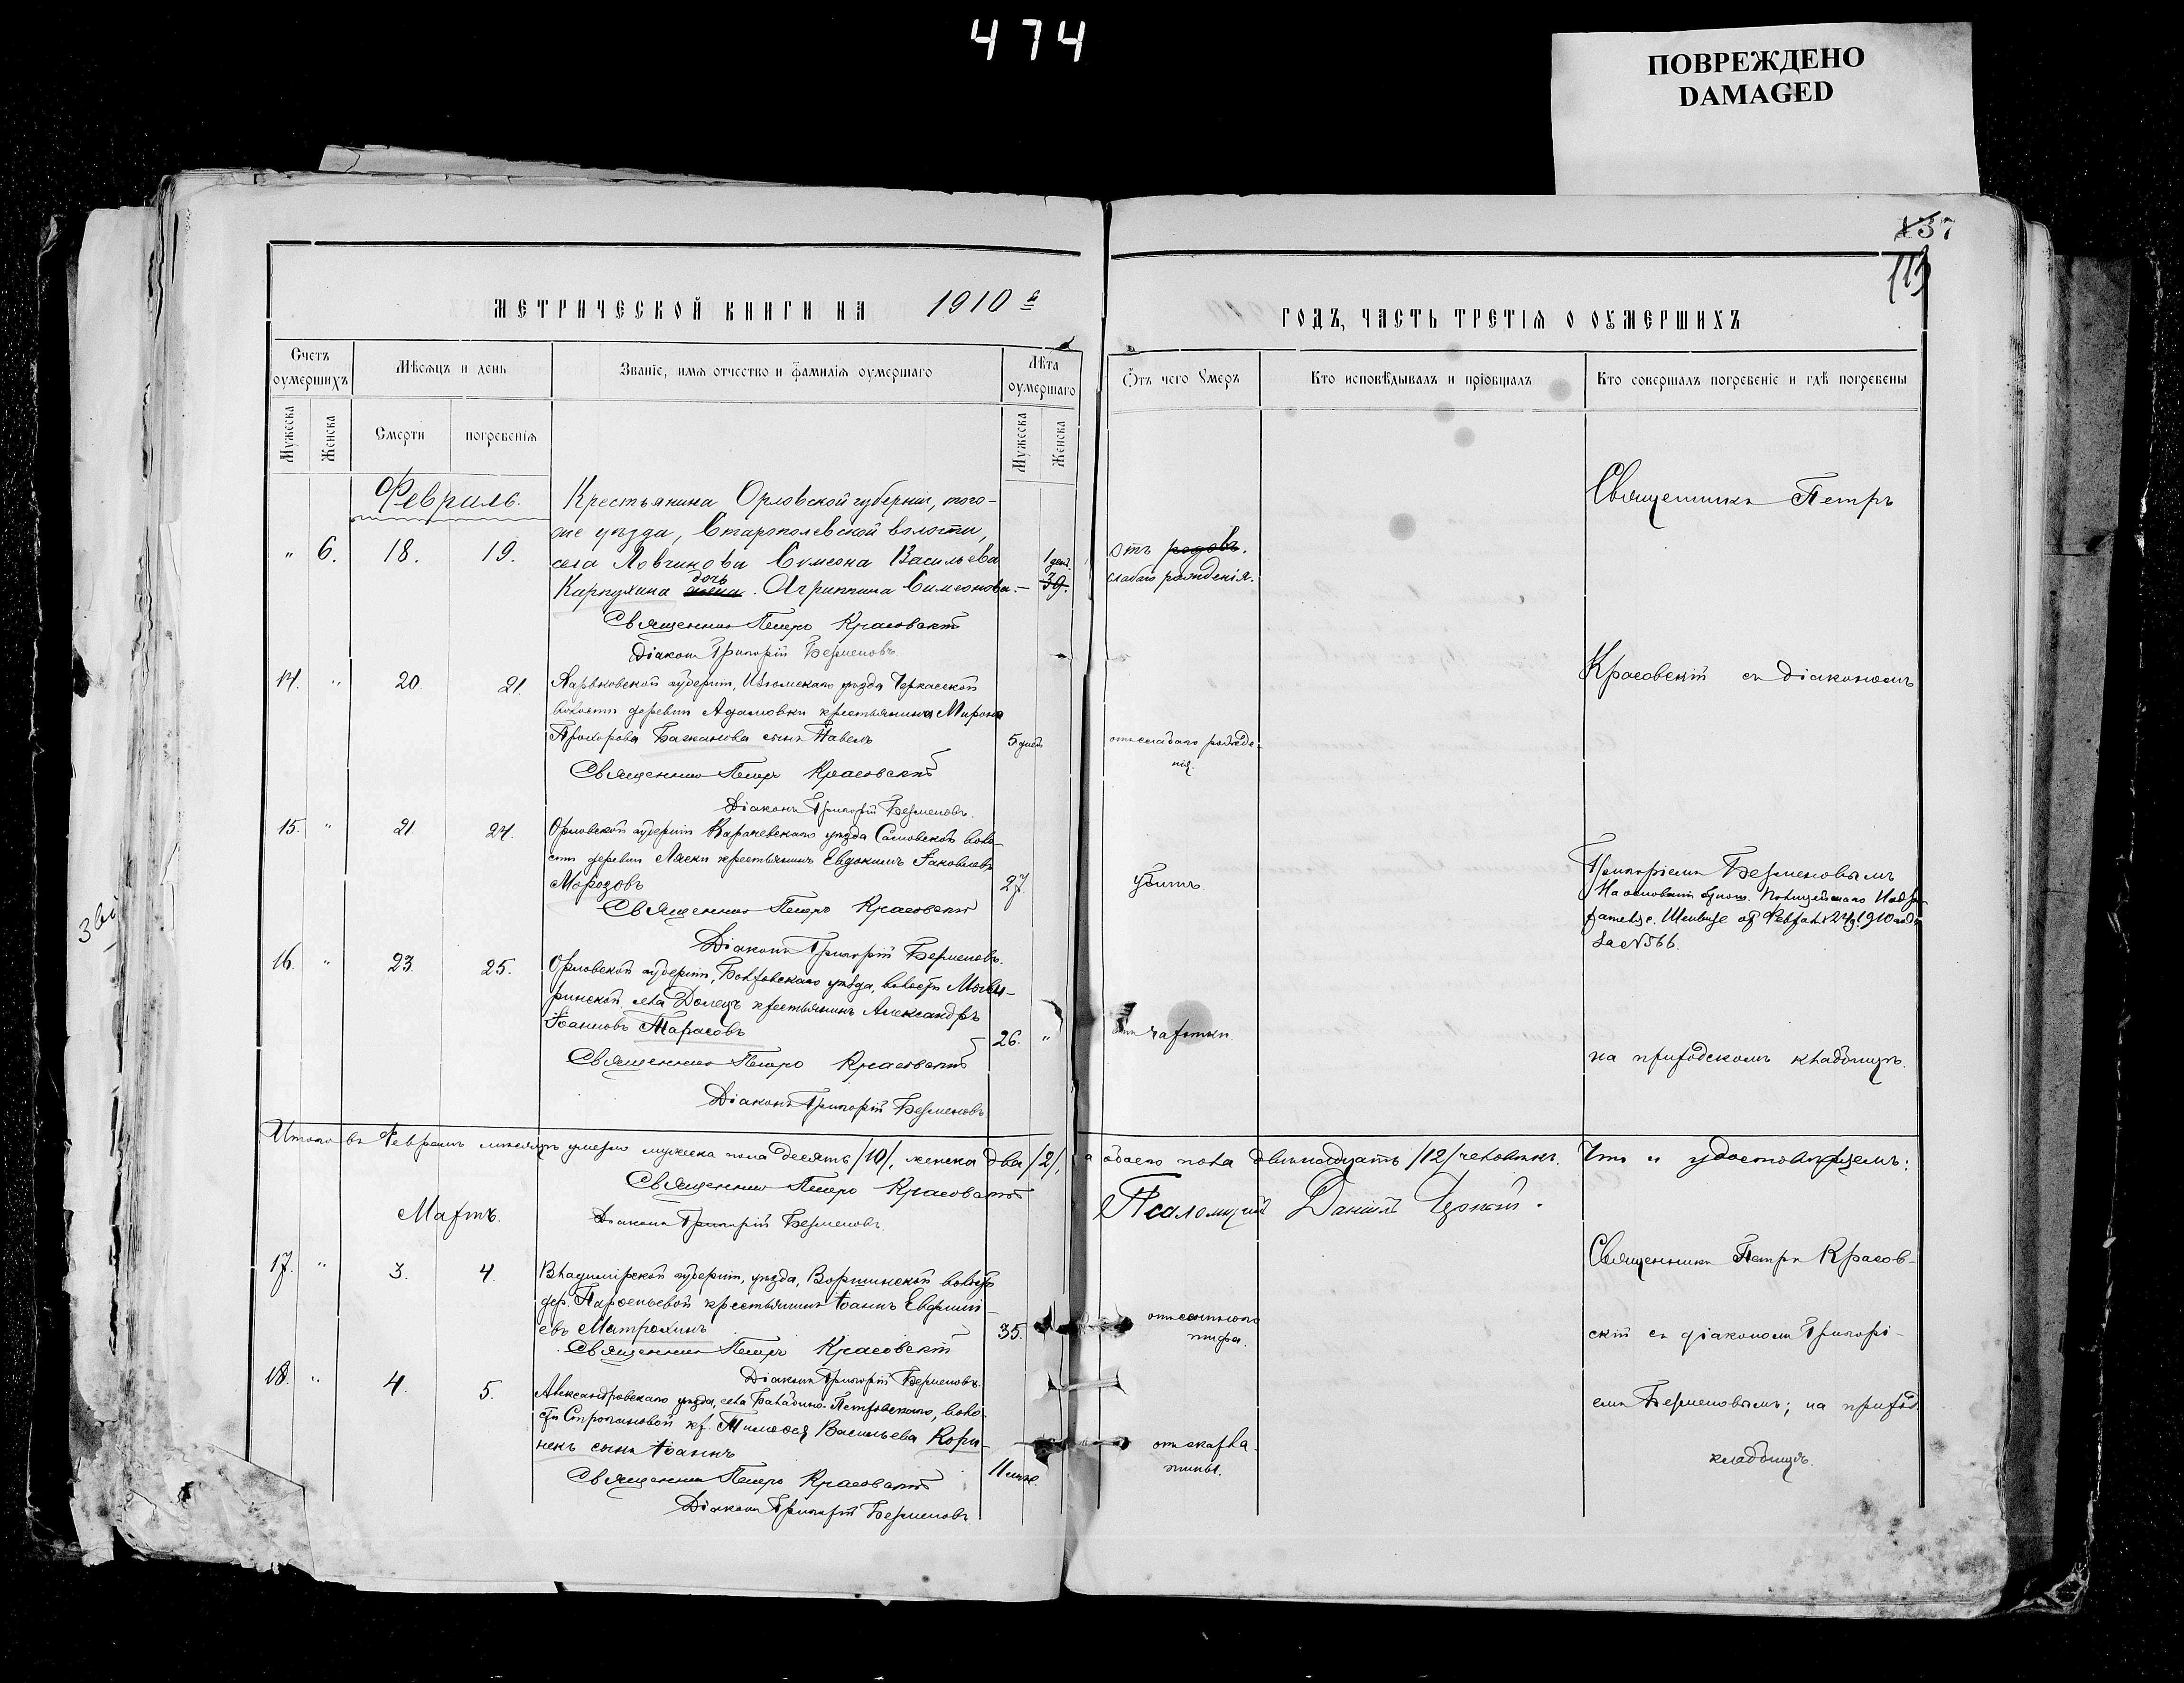 474
ПОВРЕЖДЕНО
DAMAGED
137
113
МЕТРИЧЕСКОЙ КНИГИ НА 1910 й
ГОДЪ, ЧАСТЬ ТРЕТІЯ О ОУМЕРШИХЪ
Счетъ оумершихъ
Мѣсяцъ и день
Званіе, имя отчество и фамилія оумершаго
Лѣта оумершаго
Ѿтъ чего Умеръ
Кто исповѣдывалъ и пріобщалъ
Кто совершалъ погребеніе и гдѣ погребены
Мужеска
Женска
Смерти
погребенія
Мужеска
Женска
Февраль.
„ 6. 18. 19.
Крестьянина Орловской губерніи, того-
же уѣзда, волости,
села Ловчикова Симеона Васильева
Карпухина жена дочь Агриппина Симеонова. —
1 ден.
39.
отъ родовъ.
слабаго рожденія.
Священникъ Петръ Красовскій
Діаконъ Григорій Берменовъ.
14. „ 20. 21.
Харьковской губерніи, Изюмскаго уѣзда Черкасской
волости деревни Адамовки крестьянина Мирона
Прохорова Бажанова сынъ Павелъ
5 дней
отъ слабаго рожде-
нія.
Священникъ Петръ Красовскій
Діаконъ Григорій Берменовъ.
15. „ 21. 24.
Орловской губерніи Карачевскаго уѣзда воло-
сти деревни крестьянинъ Евдокимъ Іаковлевъ
Морозовъ
27.
убитъ.
Священникъ Петръ Красовскій
Діаконъ Григорій Берменовъ.
16. „ 23. 25.
Орловской губерніи, Болховскаго уѣзда, волости
села Долецъ крестьянинъ Александръ
Іоанновъ Тарасовъ
26. „
отъ чахотки.
Священникъ Петръ Красовскій
Діаконъ Григорій Берменовъ
Священникъ Петръ
Красовскій съ діакономъ
Григоріемъ Берменовымъ
На основаніи Полицейскаго Надзи-
рателя с. от Февраля 24 д. 1910 года
За № 566.
на приходскомъ кладбищѣ.
Итого въ Февралѣ мѣсяцѣ умерло мужеска пола десять /10/, женска два /2/,
а обоего пола двѣнадцать /12/ человѣкъ. Что и удостовѣряемъ:
Священникъ Петръ Красовскій
Діаконъ Григорій Берменовъ.
Псаломщикъ Даніилъ
Мартъ.
17. „ 3. 4.
Владимірской губерніи, уѣзда, Воршинской волости
дер. крестьянинъ Іоаннъ
евъ Матрохинъ
35.
отъ сыпного
тифа.
Священникъ Петръ Красовскій
Діаконъ Григорій Берменовъ.
18. „ 4. 5.
Александровскаго уѣзда, села Петровскаго, воло-
сти Строгановой кр. Тимофея Васильева Кори-
некъ сынъ Іоаннъ
11 мѣс.
отъ скарла-
тины.
Священникъ Петръ Красовскій
Діаконъ Григорій Берменовъ
Священникъ Петръ Красов-
скій съ діакономъ Григорі-
емъ Берменовымъ; на приход.
кладбищѣ.